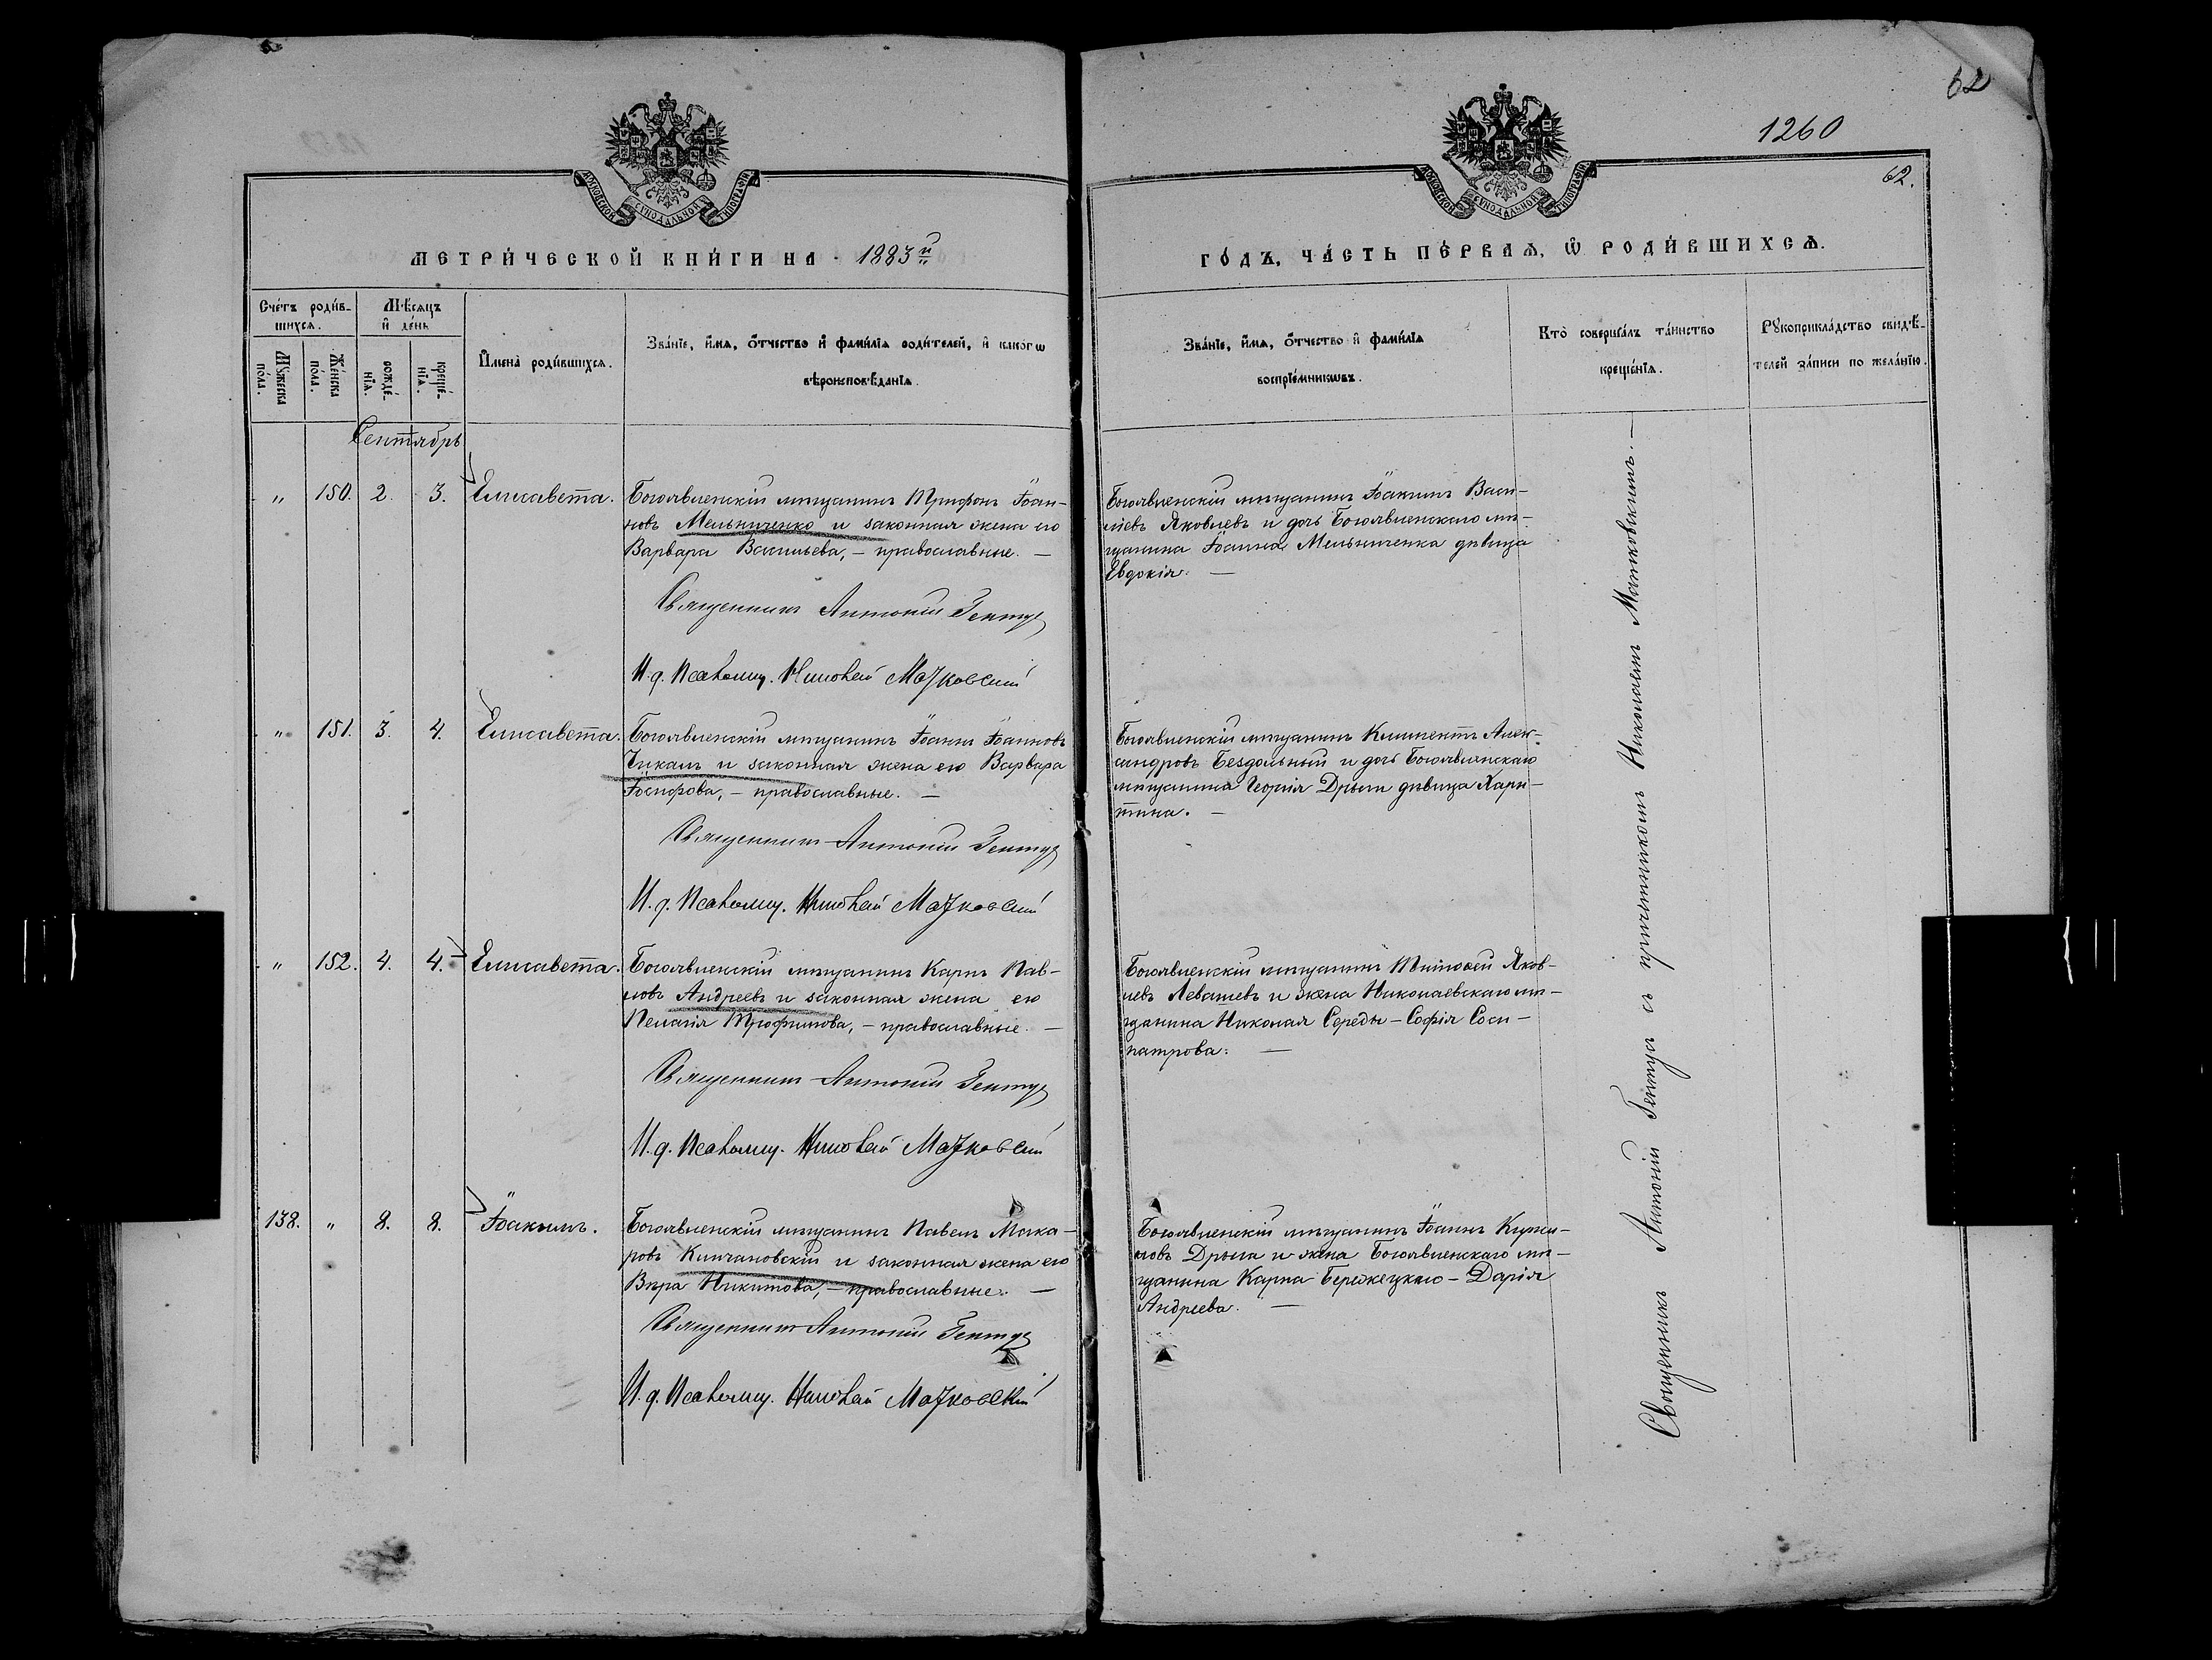 62
1260
62.
МОСКОВСКОЙ СѴНОДАЛЬНОЙ ТИПОГРАФІИ
МОСКОВСКОЙ СѴНОДАЛЬНОЙ ТИПОГРАФІИ
МЕТРИ́ЧЕСКОЙ КНИ́ГИ НА 1883й
ГО́ДЪ, ЧА́СТЬ ПЕ́РВАѦ, Ѿ РОДИ́ВШИХСѦ.
Сче́тъ роди́в-
шихсѧ.
Мѣ́сѧцъ
и҆ де́нь
Мꙋ́жеска
по́ла.
Же́нска
по́ла.
рожде́-
нїѧ.
креще́-
нїѧ.
И҆мена̀ роди́вшихсѧ.
Зва́нїе, и҆́мѧ, ѻ҆́тчество и҆ фами́лїѧ роди́телей, и҆ како́гѡ
вѣроисповѣ́данїѧ.
Зва́нїе, и҆́мѧ, ѻ҆́тчество и҆ фами́лїѧ
воспрїе́мникѡвъ.
Кто̀ соверша́лъ та́инство
креще́нїѧ.
Рꙋкоприкла́дство свидѣ́-
телей за́писи по жела́нїю.
Сентябрь
„ 150. 2. 3. Елисавета.
Богоявленскій мѣщанинъ Трифонъ Іоан-
новъ Мельниченко и законная жена его
Варвара Васильева, – православные. –
Священникъ Антоній Гентуз
И.д. Псаломщ. Николай Мачковскій
Богоявленскій мѣщанинъ Іоакимъ Васи-
ліевъ Яковлевъ и дочь Богоявленскаго мѣ-
щанина Іоанна Мельниченка дѣвица
Евдокія. –
„ 151. 3. 4. Елисавета.
Богоявленскій мѣщанинъ Іоаннъ Іоанновъ
Чикалъ и законная жена его Варвара
Іосифова, – православные. –
Священникъ Антоній Гентуз
И.д. Псаломщ. Николай Мачковскій
Богоявленскій мѣщанинъ Климентъ Алек-
сандровъ Бездольный и дочь Богоявленскаго
мѣщанина Георгія Дрыги дѣвица Хари-
тина. –
„ 152. 4. 4. Елисавета.
Богоявленскій мѣщанинъ Карпъ Пав-
ловъ Андреевъ и законная жена его
Пелагія Трофимова, – православные. –
Священникъ Антоній Гентуз
И.д. Псаломщ. Николай Мачковскій
Богоявленскій мѣщанинъ Тимофей Яков-
левъ Левашевъ и жена Николаевскаго мѣ-
щанина Николая Середы – Софія Соси-
патрова. –
138. „ 8. 8. Іоакимъ.
Богоявленскій мѣщанинъ Павелъ Мака-
ровъ Кипчановскій и законная жена его
Вѣра Никитова, – православные. –
Священникъ Антоній Гентуз
И.д. Псаломщ. Николай Мачковскій
Богоявленскій мѣщанинъ Іоаннъ
Дрыга и жена Богоявленскаго мѣ-
щанина Карпа Бережецкаго – Дарія
Андреева. –
Священникъ Антоній Гентуз съ причетникомъ Николаемъ Мачковскимъ. –